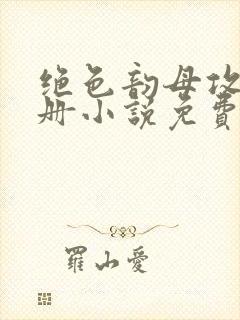 绝色韵母攻
册小说免費
羅山愛